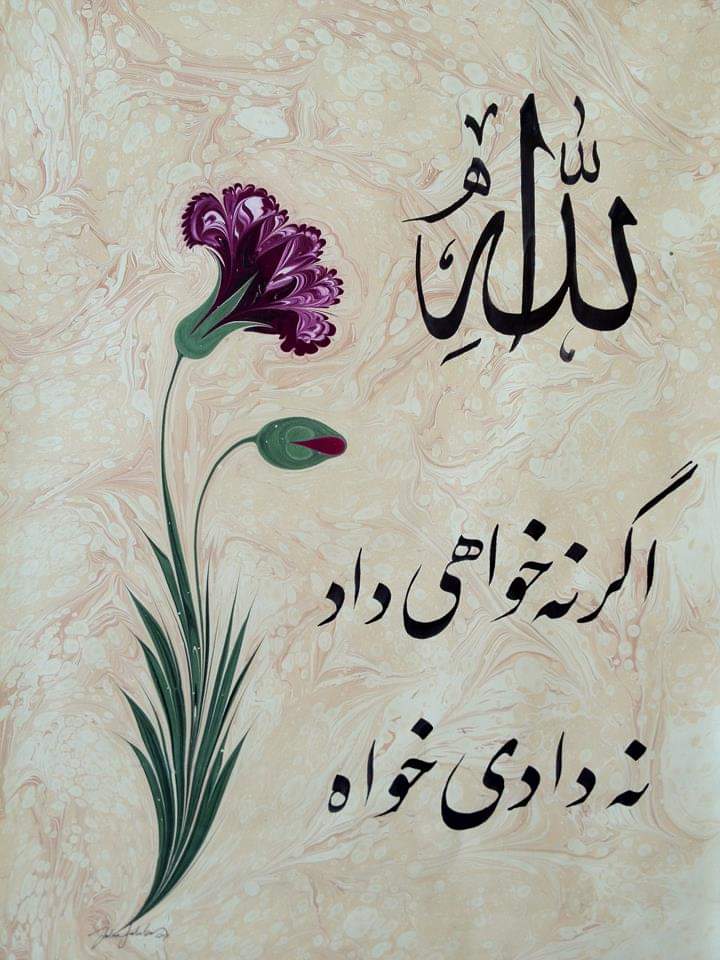 الله
اگر نه خواهی داد
نه دادی خواه